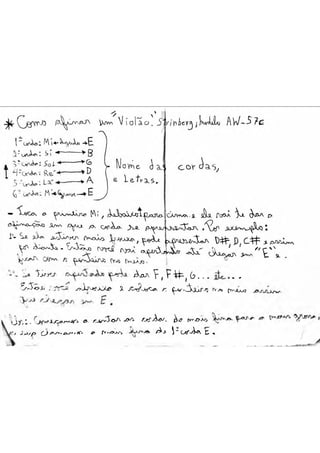 * Como afinar um "Violão". Strinberg, Modelo AW-57C
1ª corda: Mi Aguda → E
2ª corda: Si ↔ B
3ª corda: Sol ↔ G
4ª corda: Ré ↔ D
5ª corda: Lá ↔ A
6ª corda: Mi Grave → E
Nome das cordas,
e Letras.
- Toca a primeira Mi, debaixo para cima e ele vai te dar a
afinação em que a corda se apresentar. Por exemplo:
1- Se ela estiver mais frouxa, pode apresentar D#, D, C# e assim
por diante. Então você vai apertando até chegar em "E" e
ficar com o ponteiro no meio.
2- Se tiver apertada pode dar F, F#, G... etc...
Então você afrouxa e coloca o ponteiro no meio assim
que chegar em E.
Começamos a contar as cordas do mais fina para a mais grossa,
chamamos a mais fina de 1ª corda E.